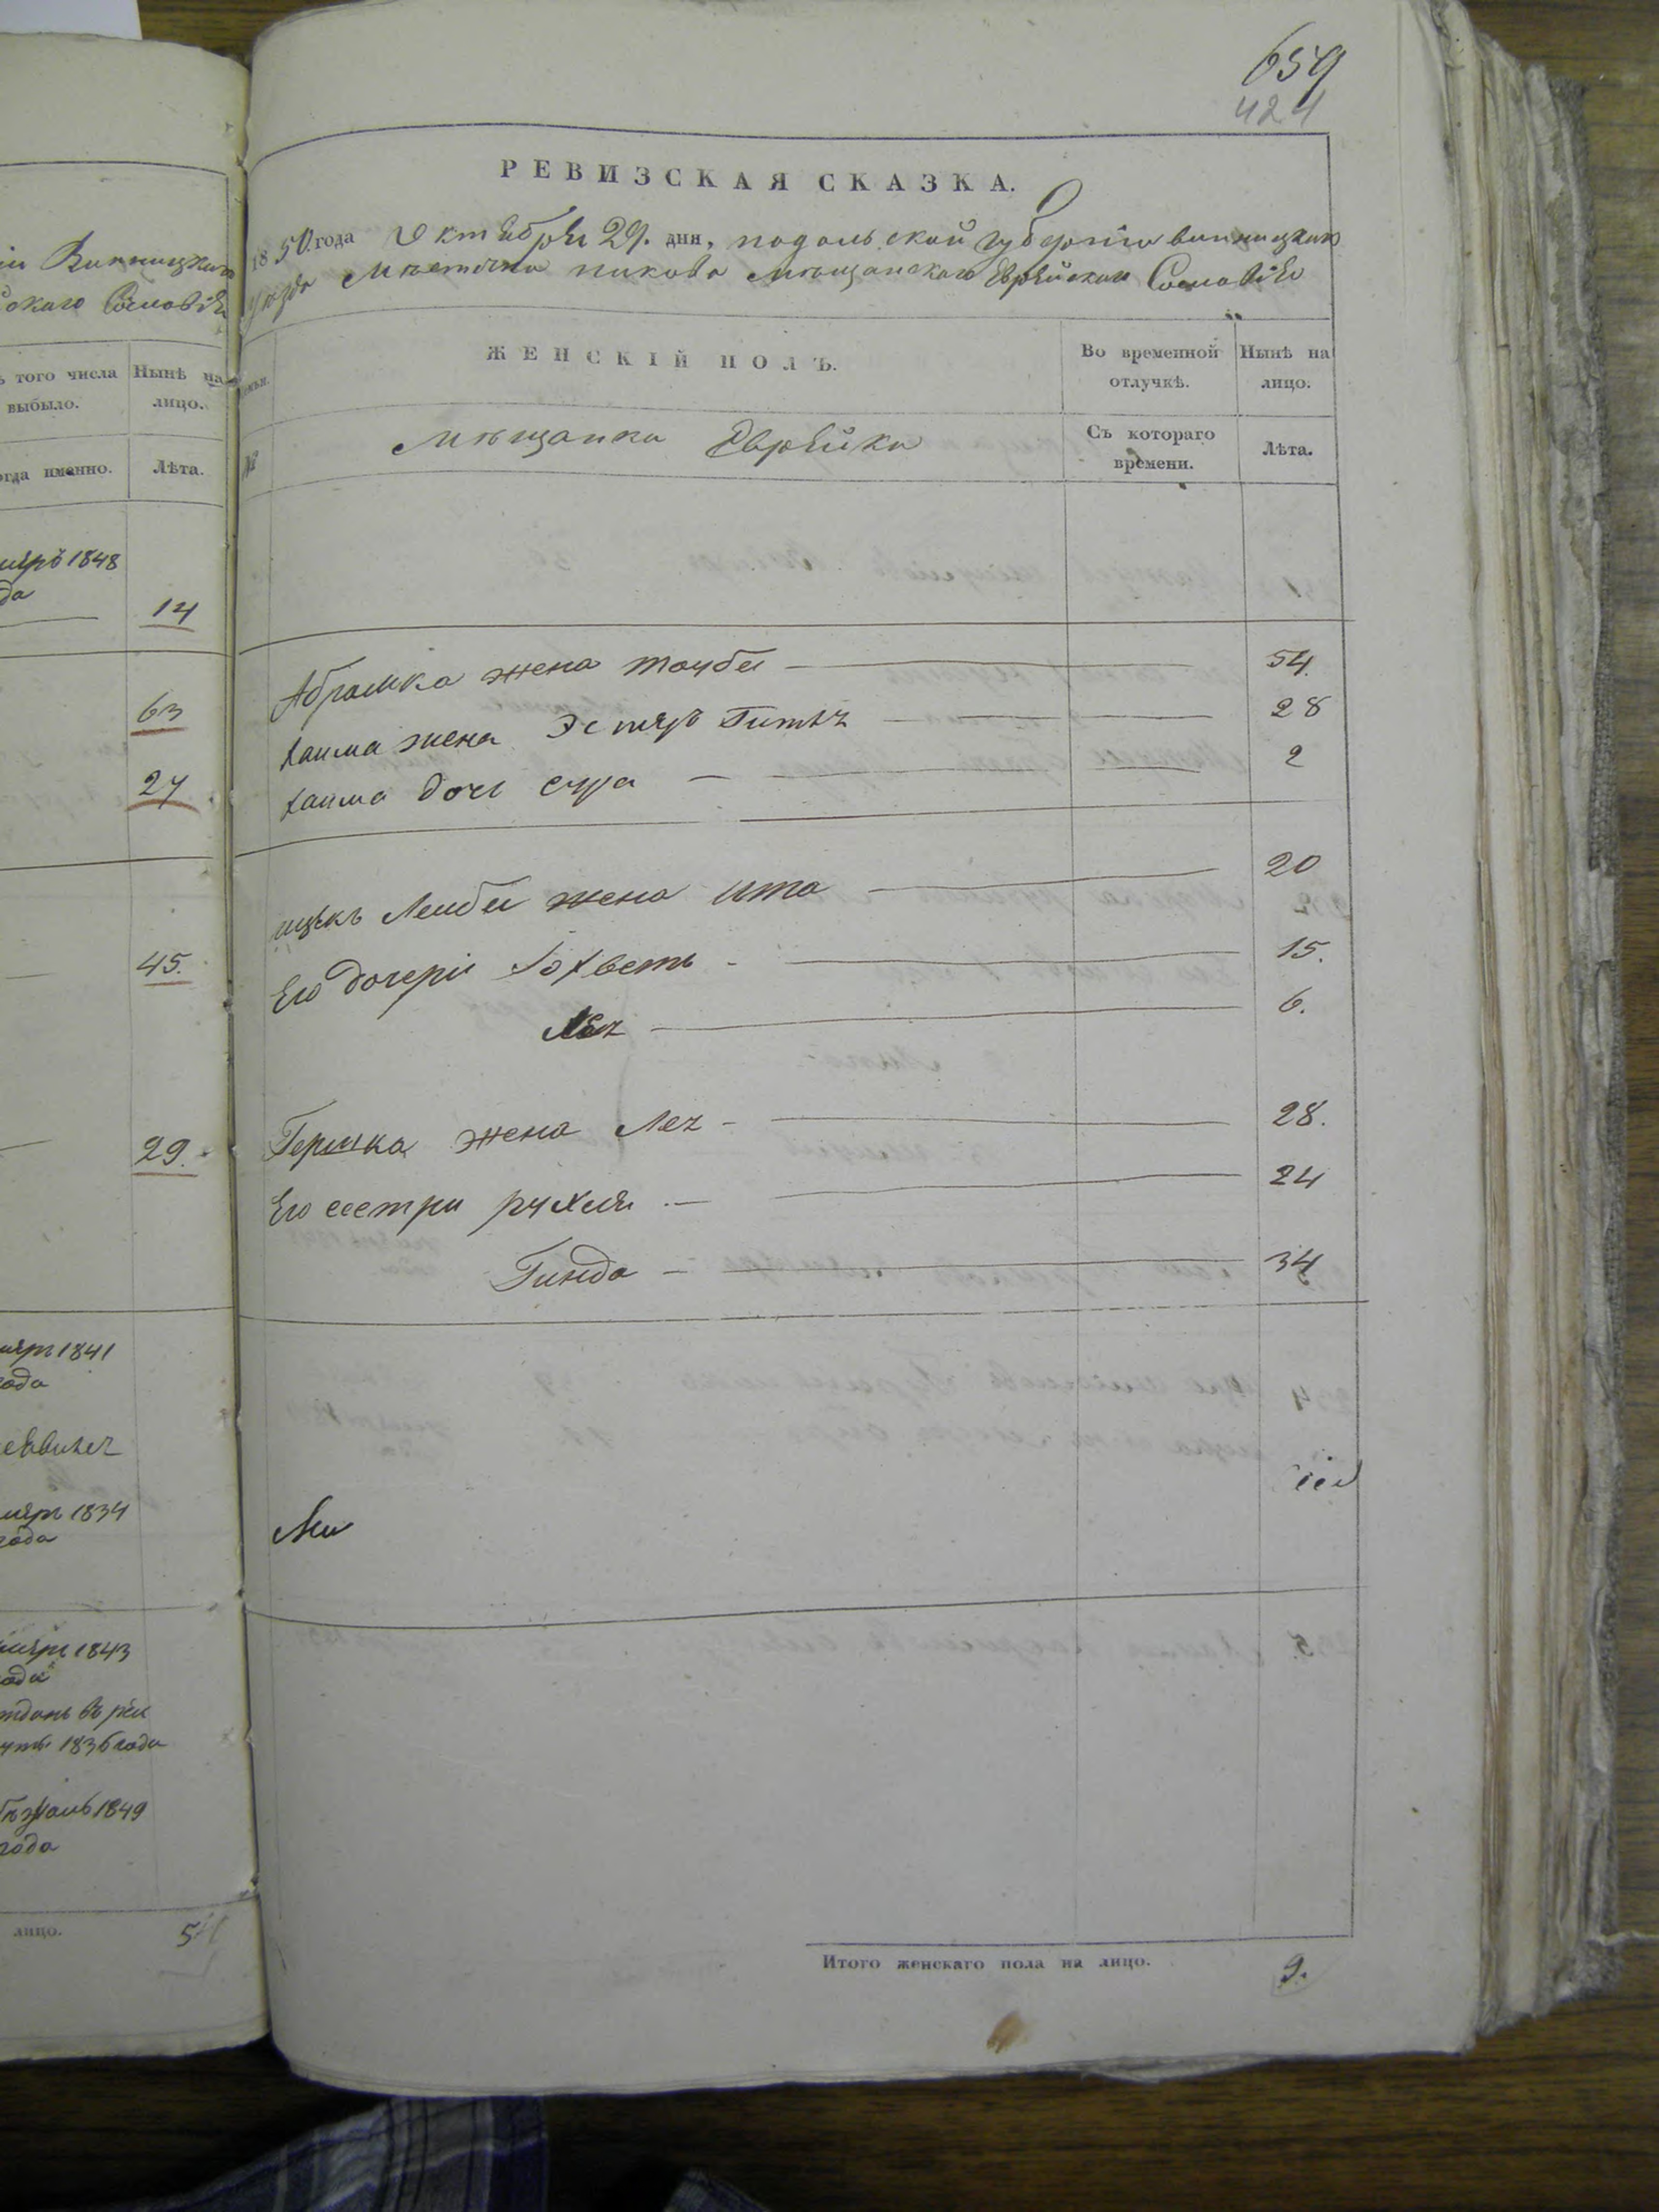 659
424
РЕВИЗСКАЯ СКАЗКА.
1850 года Октября 29. дня, подольской губерніи винницкаго
уезда Мѣстечка пикова Мѣщанскаго Еврейскаго Сословія
ЖЕНСКІЙ ПОЛЪ.
Во временной отлучкѣ.
Нынѣ на лицо.
Мѣщанки Еврейки
Съ котораго времени.
Лѣта.
Абрамка жена таубя 54.
хаима жена Эстеръ Гитля 28
хаима дочь сура 2
ицекъ Лейбы жена ита 20
Его дочери Іохветь 15.
Лея 6.
Гершка жена Лея 28.
Его сестри рухля 24
Гинда 34
Итого женскаго пола на лицо. 9.
іи Винницкаго
скаго Сословія
ъ того числа выбыло.
Нынѣ на лицо.
огда именно.
Лѣта.
1848
14
63
27
45.
29.
1841
года
1834
года
1843
года
1836 года
1849
года
лицо. 5